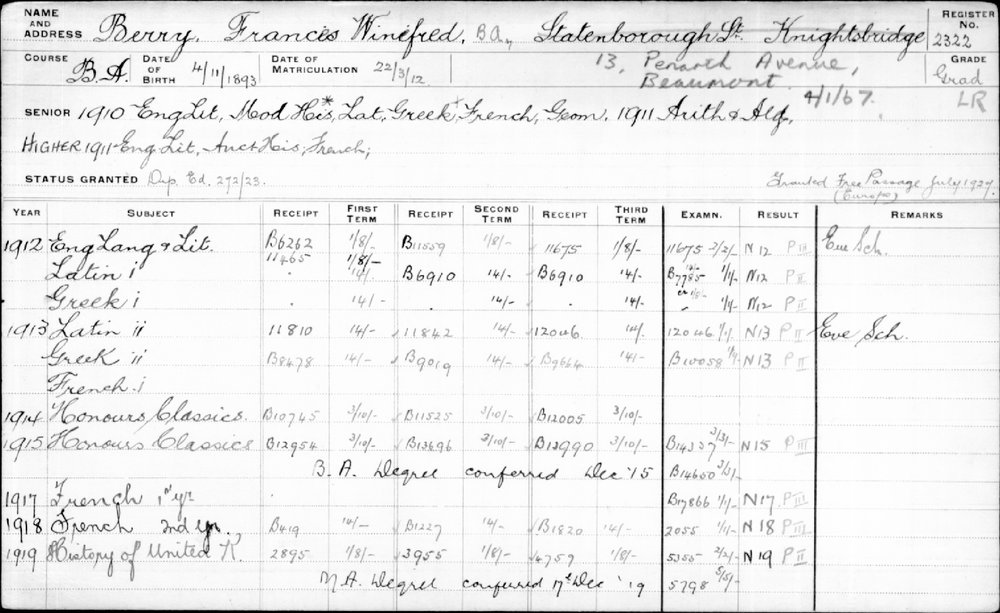 NAME AND ADDRESS Berry, Francis Winefred, B.A., Statenborough St. Knightsbridge REGISTER No. 2322
13, Penarth Avenue, Beaumont. 4/1/67.
COURSE B.A. DATE OF BIRTH 4/11/1893 DATE OF MATRICULATION 22/3/12 GRADE Grad LR
SENIOR 1910 Eng Lit, Mod His*, Lat, Greek, French, Geom. 1911 Arith & Alg,
HIGHER 1911 Eng Lit, Anct His, French;
STATUS GRANTED Dip. Ed. 272/23. Granted Free Passage July 1927 (Europe)
YEAR SUBJECT RECEIPT FIRST TERM RECEIPT SECOND TERM RECEIPT THIRD TERM EXAMN. RESULT REMARKS
1912 Eng Lang & Lit. B6262 1/8/- B11559 1/8/- 11675 1/8/- 11675 2/2/- N12 P III Eve Sch.
11465 1/8/-
Latin i 14/- B6910 14/- B6910 14/- B7785 1/1/- N12 P II
Greek i 14/- 14/- 14/- 1/1/- N12 P II
1913 Latin ii 11810 14/- 11842 14/- 12046 14/- 12046 1/1/- N13 P II Eve Sch.
Greek ii B8478 14/- B9019 14/- B9664 14/- B10058 1/1/- N13 P II
French i
1914 Honours Classics. B10745 3/10/- B11525 3/10/- B12005 3/10/-
1915 Honours Classics B12954 3/10/- B13696 3/10/- B13990 3/10/- B14337 3/3/- N15 P III
B.A. Degree conferred Dec '15 B14650 3/3/-
1917 French 1st yr B17866 1/1/- N17 P III
1918 French 2nd yr. B419 14/- B1227 14/- B1820 14/- 2055 1/1/- N18 P III
1919 History of United K. 2895 1/8/- 3955 1/8/- 4759 1/8/- 5355 2/2/- N19 P II
M.A. Degree conferred 17th Dec '19 5798 5/5/-